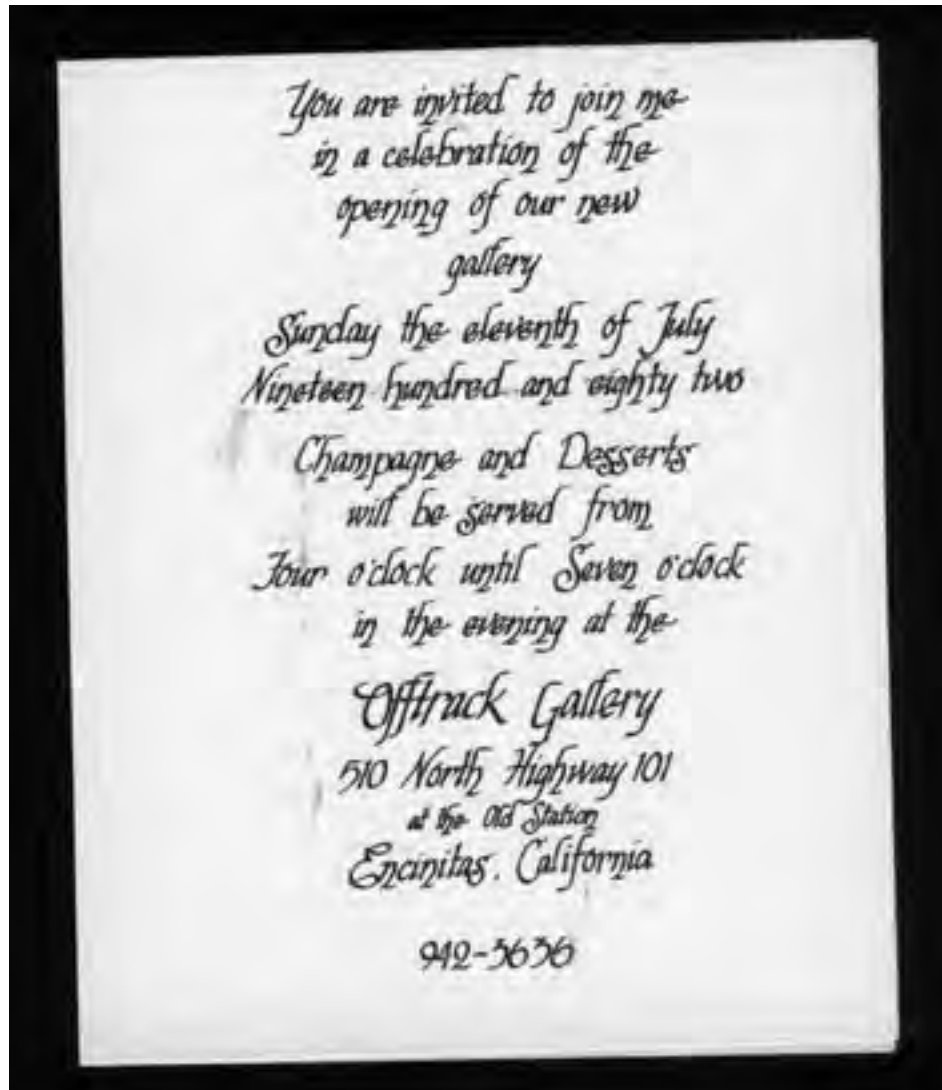 You are invited to join me
in a celebration of the
opening of our new
gallery
Sunday the eleventh of July
Nineteen hundred and eighty two
Champagne and Desserts
will be served from
Four o'clock until Seven o'clock
in the evening at the
Offtrack Gallery
510 North Highway 101
at the Old Station
Encinitas, California
942-3636